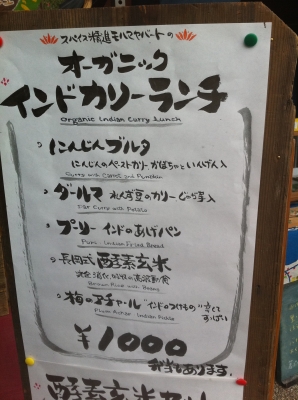 スパイス精進モハマヤバートの
オーガニック
インドカリーランチ
Organic Indian Curry Lunch
にんじんブルタ
にんじんのペーストカリー かぼちゃといんげん入
Curry with Carrot and Pumpkin
ダールマ れんず豆のカリー じゃが芋入
Dar Curry with Potato
プーリー インドのあげパン
Puri Indian Fried Bread
長岡式 酵素玄米
Brown Rice with Beans
梅のアチャール インドのつけもの 辛くてすっぱい
Plum Achar Indian Pickle
¥1000
弁当もあります。
酵素玄米